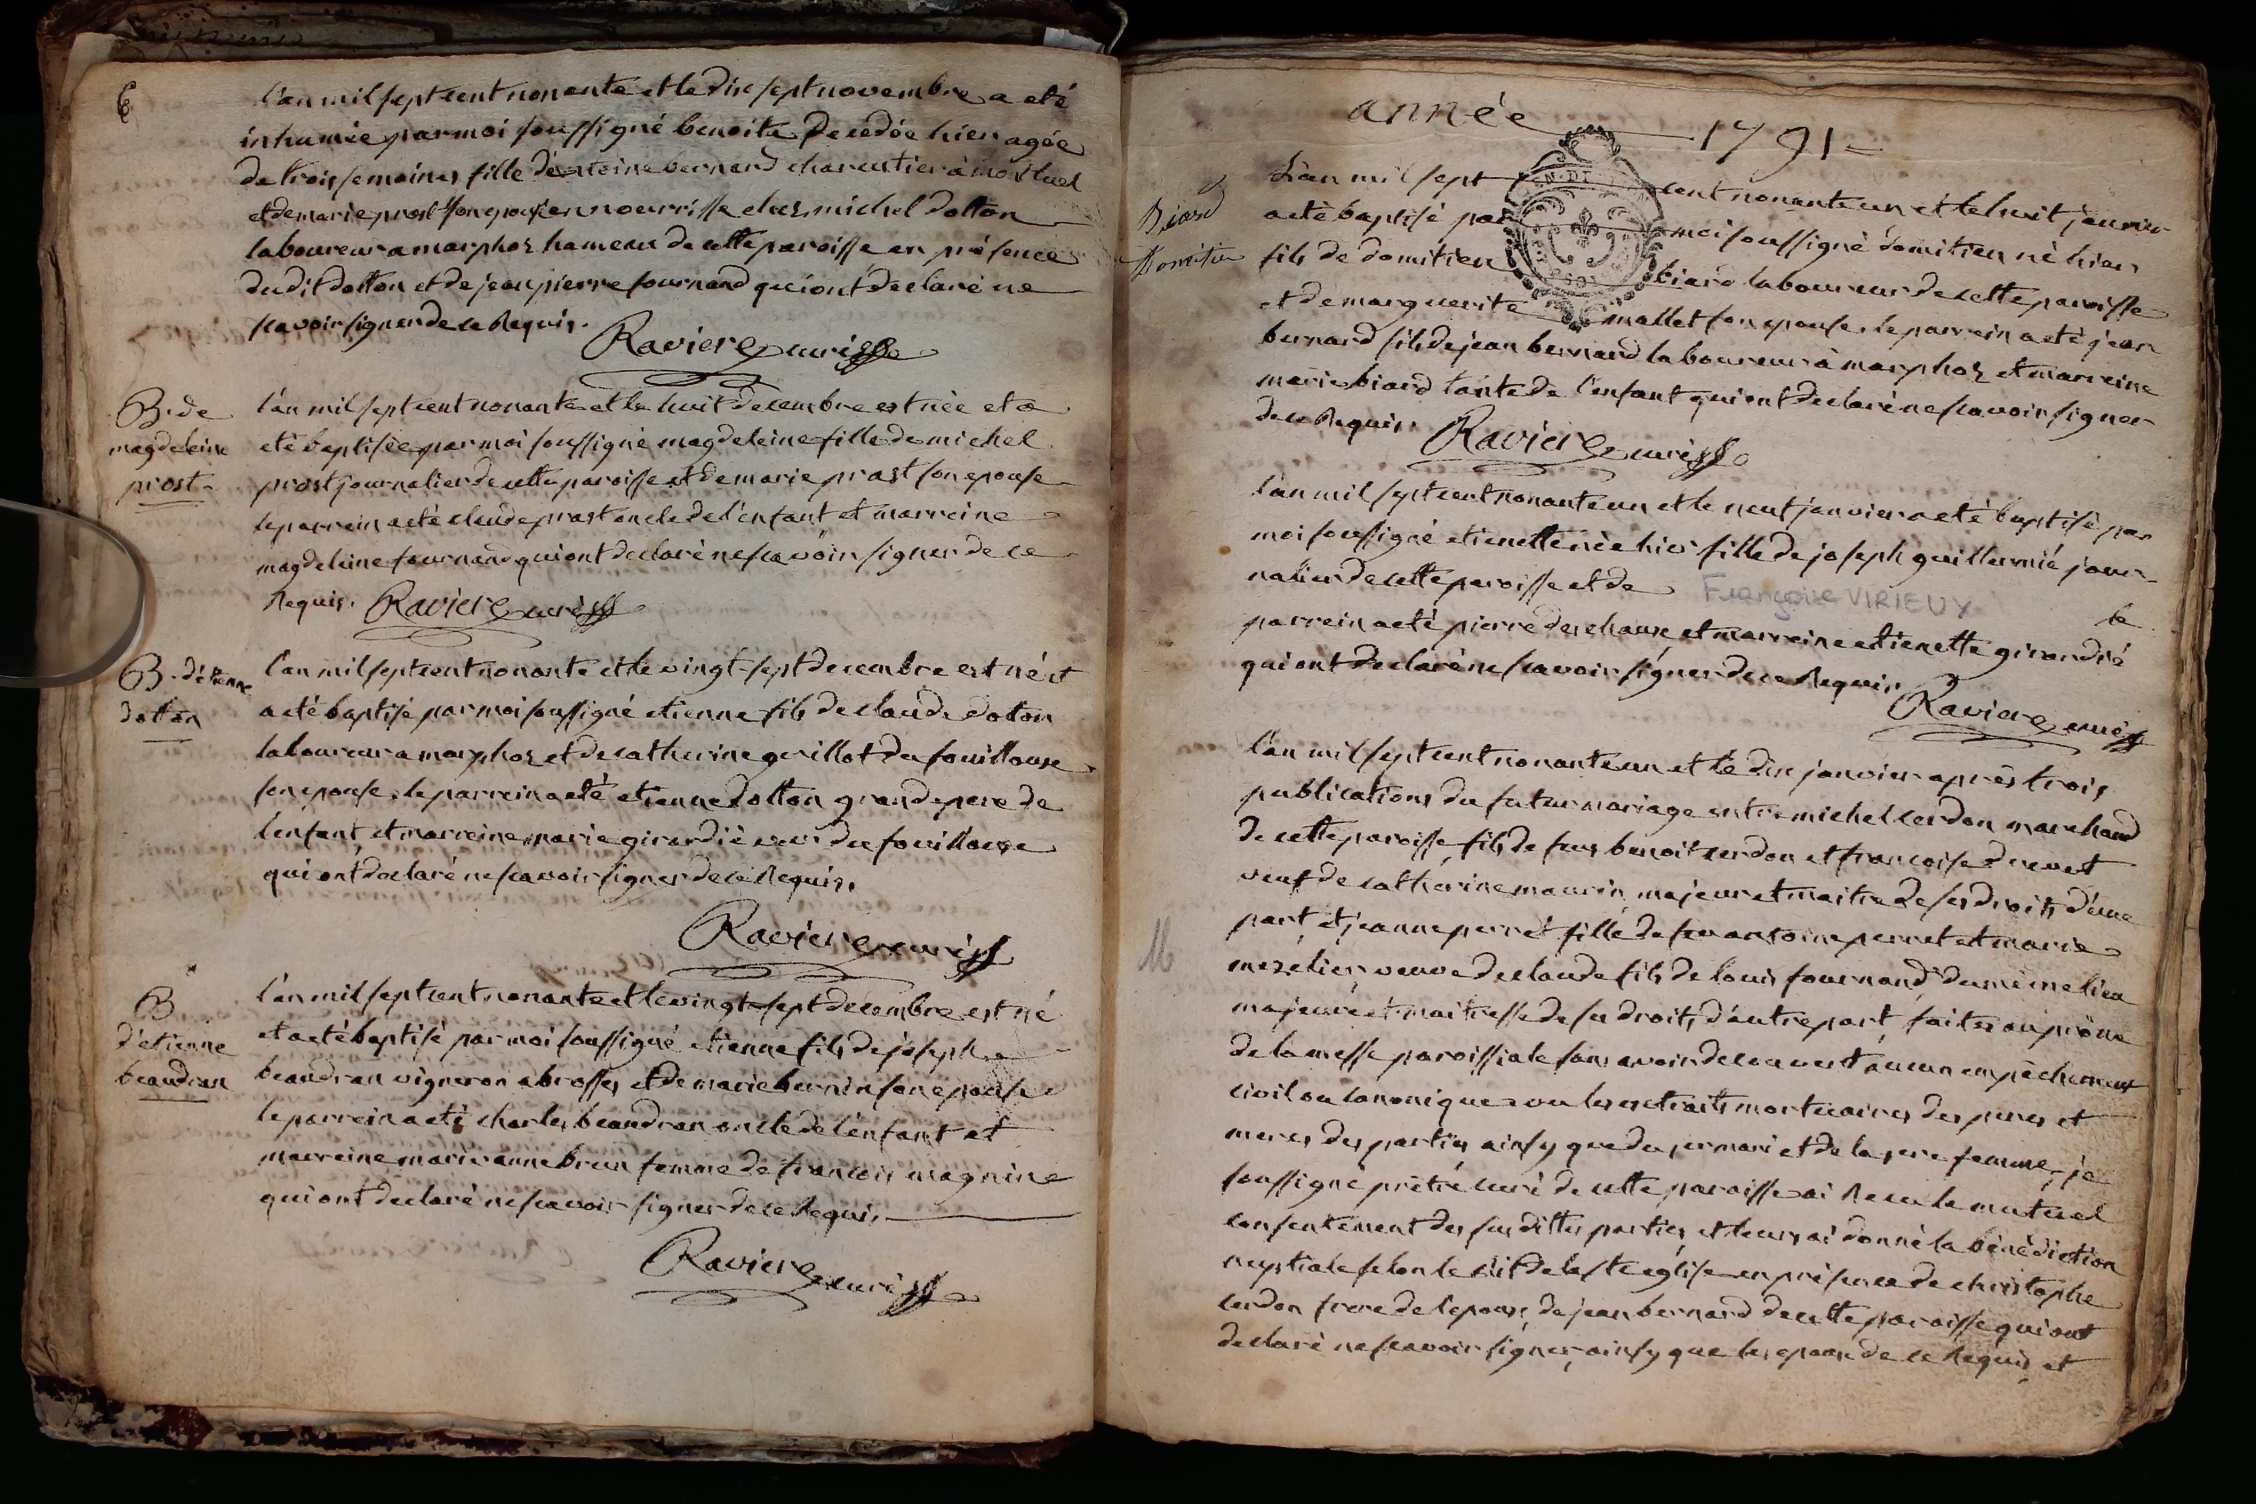 L'an mil sept cent nonante et le dix sept novembre a eté
inhumée par moi soussigné benoite decédée hier agée
de trois semaines fille d'antoine bernard charcutier à montluel
et de marie prost son epouse en nourrisse chez michel dotton
laboureur a marphoz hameau de cette paroisse en présence
du dit dotton et de jean pierre fournand qui ont declaré ne
scavoir signer de ce Requis.
Raviere curé
B. de
magdeleine
prost
l'an mil sept cent nonante et le huit decembre est née et a
eté baptisée par moi soussigné magdeleine fille de michel
prost journalier de cette paroisse et de marie prast son epouse
le parrein a eté claude prast oncle de l'enfant et marreine
magdeleine fournand qui ont declaré ne scavoir signer de ce
Requis. Raviere curé
B. d'étienne
dotton
l'an mil sept cent nonante et le vingt-sept decembre est né et
a eté baptisé par moi soussigné etienne fils de claude dotton
laboureur a marphoz et de catherine guillot du fouillouse
son epouse, le parrein a eté etienne dotton grand pere de
l'enfant et marreine marie girardié du fouillouse
qui ont declaré ne scavoir signer de ce Requis.
Raviere curé
B
d'étienne
beaudran
l'an mil sept cent nonante et le vingt-sept decembre est né
et a eté baptisé par moi soussigné etienne fils de joseph
beaudran vigneron a brosses et de marie bernin son epouse
le parrein a eté charles beaudran oncle de l'enfant et
marreine marie anne brun femme de francois magnine
qui ont declaré ne scavoir signer de ce Requis.
Raviere curé
année 1791
Biard
Domitien
L'an mil sept cent nonante un et le huit janvier
a eté baptisé par moi soussigné domitien né hier
fils de domitien biard laboureur de cette paroisse
et de marguerite mallet son epouse, le parrein a eté jean
bernard fils de jean bernard laboureur à marphoz et marreine
marie biard tante de l'enfant qui ont declaré ne scavoir signer
de ce Requis. Raviere curé
l'an mil sept cent nonante un et le neuf janvier a eté baptisé par
moi soussigné etienette née hier fille de joseph guillermié jour-
nalier de cette paroisse et de Françoise VIRIEUX le
parrein a eté pierre deschaux et marreine etienette girardié
qui ont declaré ne scavoir signer de ce Requis
Raviere curé
M
l'an mil sept cent nonante un et le dix janvier après trois
publications du futur mariage entre michel cerdon marchand
de cette paroisse fils de feus benoit cerdon et francoise drevet
veuf de catherine maurin, majeur et maitre de ses droits d'une
part et jeanne perret fille de feu antoine perret et marie
mezelier, veuve de claude fils de louis fournand, du même lieu
majeure et maitresse de ses droits d'autre part, faites au prône
de la messe paroissiale sans avoir decouvert aucun empêchement
civil ou canonique vu les extraits mortuaires des peres et
meres des parties ainsy que du 1er mari et de la 1ere femme, je
soussigné prêtre curé de cette paroisse ai Recu le mutuel
consentement des susdittes parties et leurs ai donné la bénédiction
nuptiale selon le rit de la ste église en présence de christophe
cerdon frere de l'epoux, de jean bernard de cette paroisse qui ont
declaré ne scavoir signer, ainsy que les epoux de ce Requis et